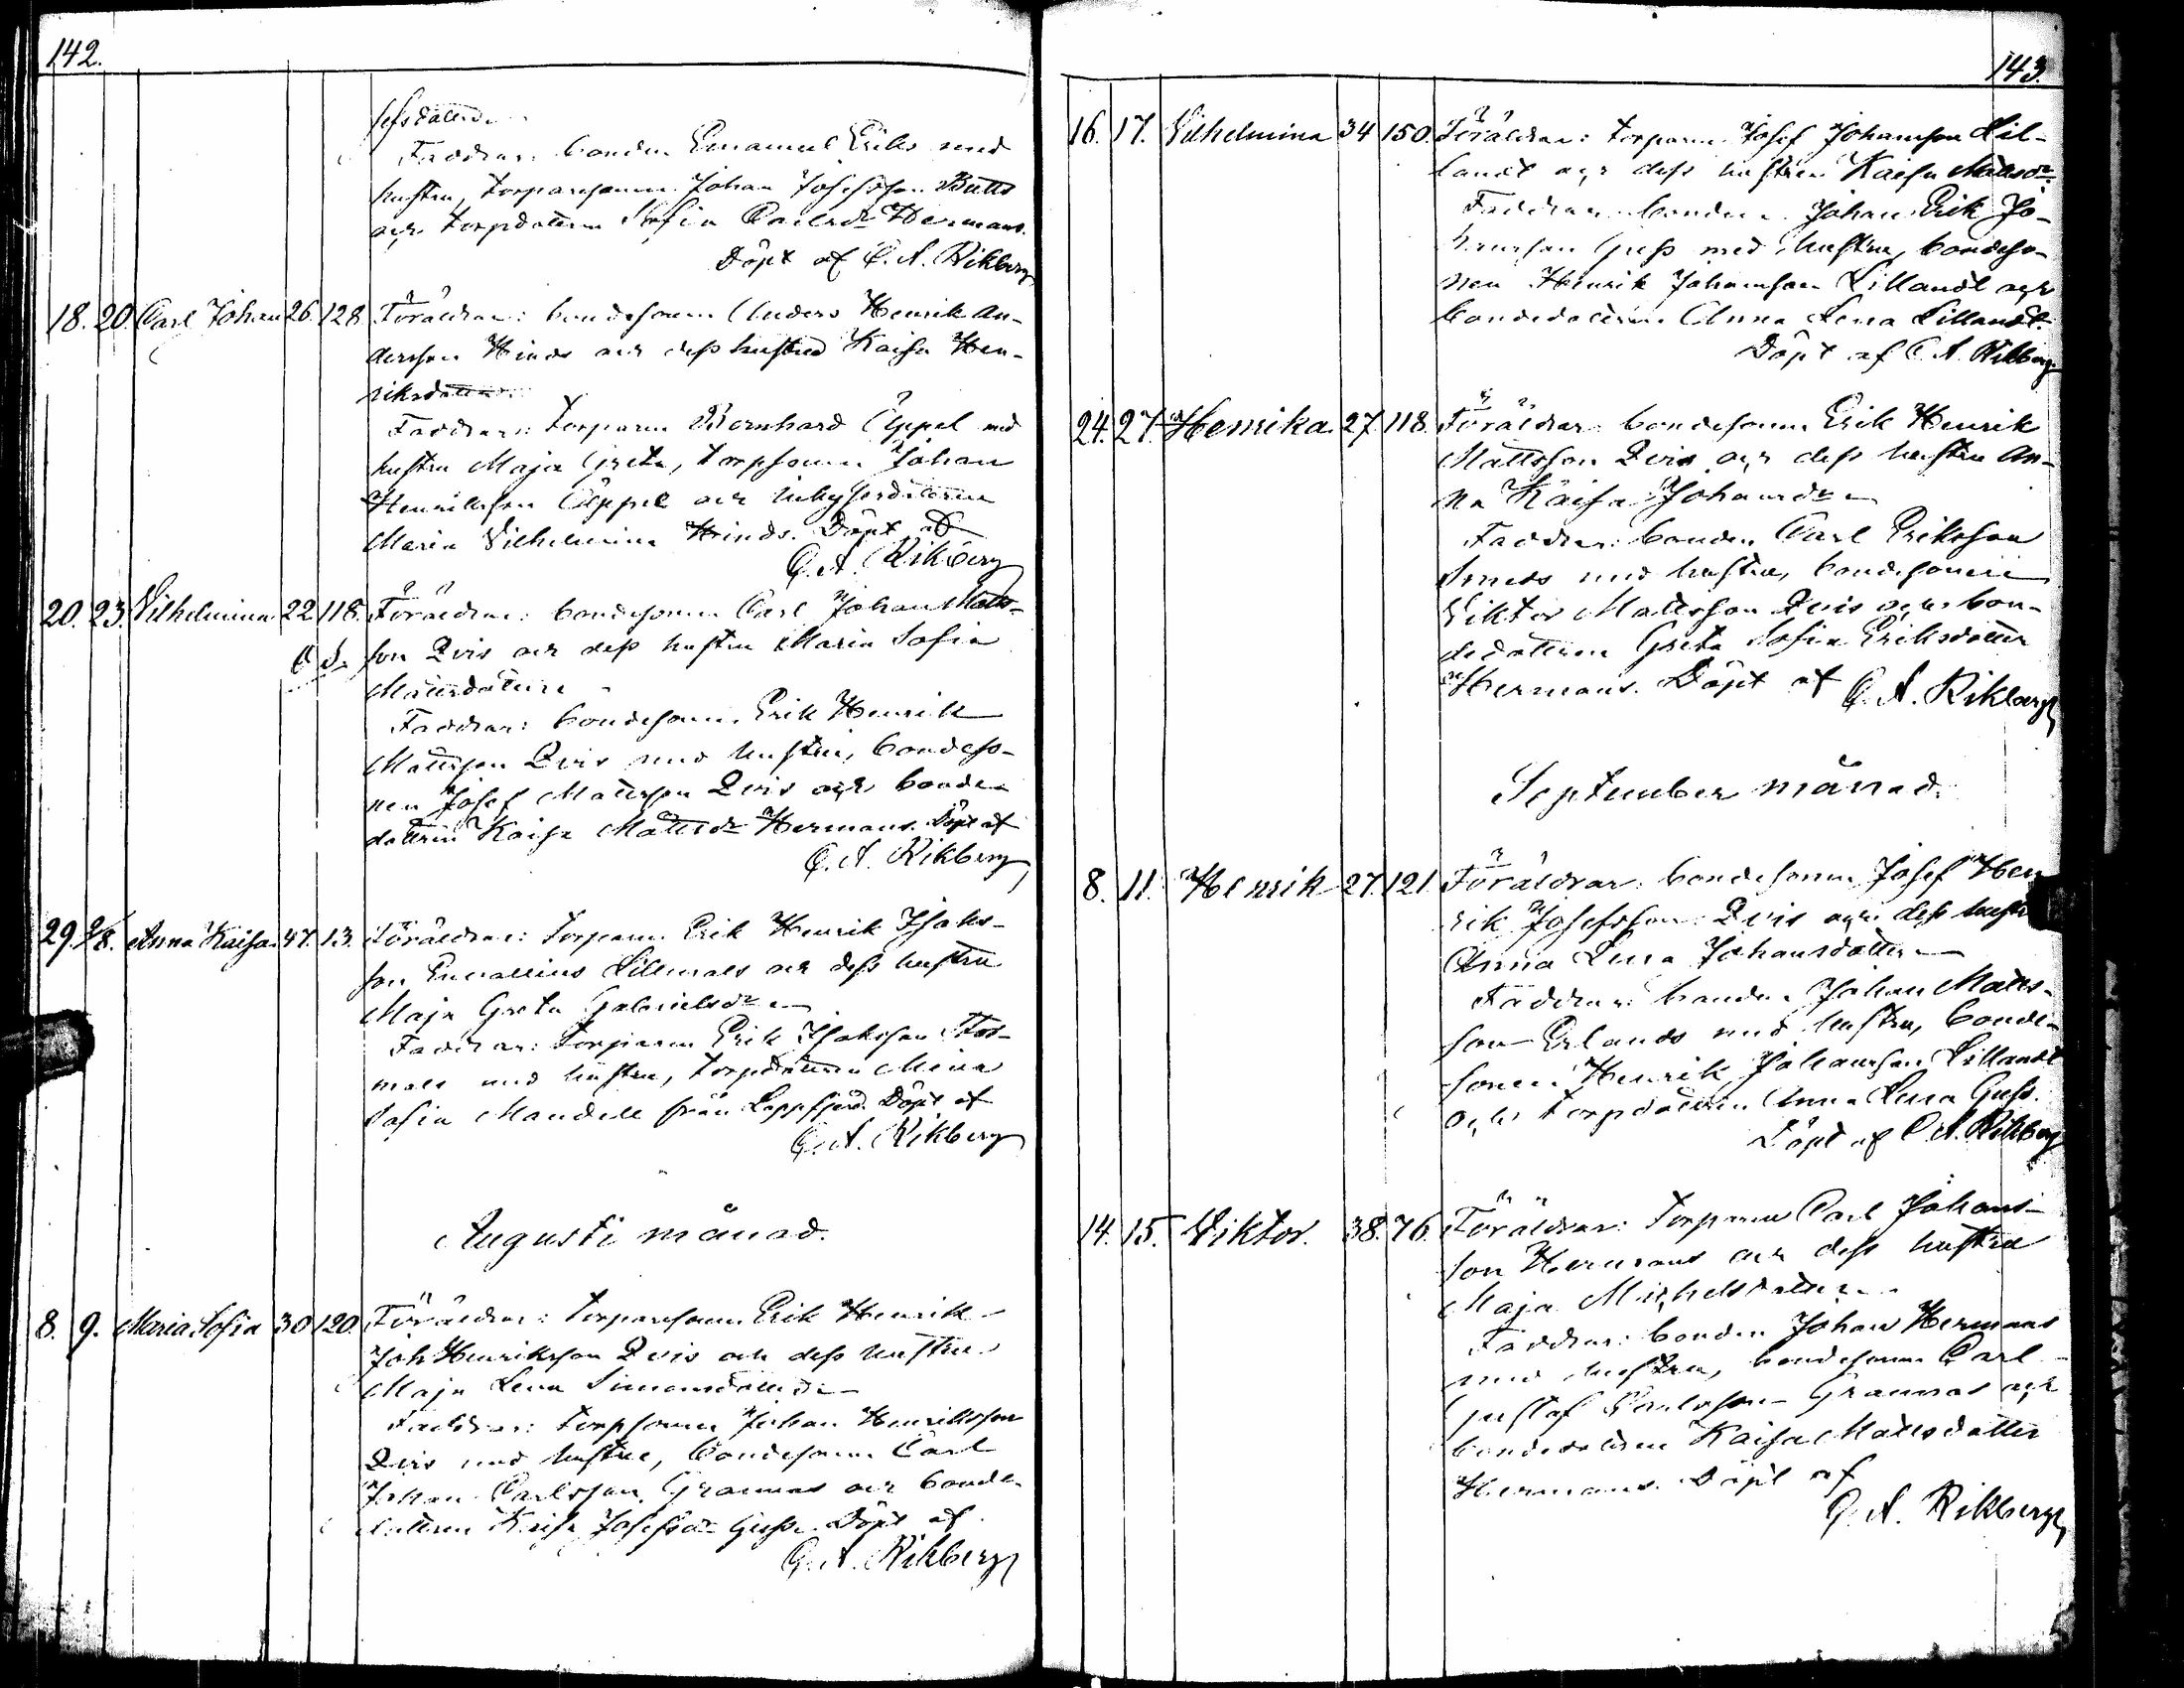 142.
sefsdotter.
Faddrar: bonden Emanuel Eriks med
hustru, torparesonen Johan Josefsson Butts
och torpdottern Sofia Carlsdr Hermans.
Döpt af C. A. Rikberg
18. 20. Carl Johan 26. 128. Föräldrar: bondesonen Anders Henrik An-
dersson Hinds och dess hustru Kaisa Hen-
riksdotter.
Faddrar: torparen Bernhard Äppel med
hustru Maja Greta, torpsonen Johan
Henriksson Äppel och inhyses dottern
Maria Vilhelmina Hinds. Döpt af
C. A. Rikberg
20. 23. Vilhelmina 22 118. Föräldrar: bondesonen Carl Johan Matts-
son Qvis och dess hustru Maria Sofia
Mattsdotter
Faddrar: bondesonen Erik Henrik
Mattsson Qvis med hustru, bondeso-
nen Josef Mattsson Qvis och bonde-
dottern Kaisa Mattsdr Hermans. Döpt af
C. A. Rikberg
29. 2/8. Anna Kaisa 47. 13. Föräldrar: torparen Erik Henrik Isaks-
son Lillmals och dess hustru
Maja Greta Gabrielsdr
Faddrar: torparen Erik Isaksson Stor-
mals med hustru, torpdottern Mina
Sofia Mandell från Lappfjerd. Döpt af
C. A. Rikberg
Augusti månad.
8. 9. Maria Sofia 30 120. Föräldrar: torparesonen Erik Henrik
Joh Henriksson Qvis och dess hustru
Maja Lena Simonsdotter
Faddrar: torpsonen Johan Henriksson
Qvis med hustru, bondesonen Carl
Johan Carlsson Grannas och bonde-
dottern Kaisa Josefsdr Guss. Döpt af
C. A. Rikberg
143.
16. 17. Vilhelmina 34 150. Föräldrar: torparen Josef Johansson Lil-
landt och dess hustru Kaisa Mattsdr.
Faddrar: bonden Johan Erik Jo-
hansson Guss med hustru, bondeso-
nen Henrik Johansson Lillandt och
bondedottern Anna Lena Lillandt.
Döpt af C. A. Rikberg
24. 27. Henrika. 27. 118. Föräldrar: bondesonen Erik Henrik
Mattsson Qvis och dess hustru An-
na Kaisa Johansdr
Faddrar: bonden Carl Eriksson
Smeds med hustru, bondesonen
Viktor Mattsson Qvis och bon-
dedottern Greta Sofia Eriksdotter
Hermans. Döpt af C. A. Rikberg
September månad.
8. 11. Henrik 27. 121. Föräldrar: bondesonen Josef Hen
rik Josefsson Qvis och dess hustru
Anna Lena Johansdotter
Faddrar: bonden Johan Matts-
son Erlands med hustru, bonde-
sonen Henrik Johansson Lillandt
och torpdottern Anna Lena Guss.
Döpt af C. A. Rikberg
14. 15. Viktor. 38. 76. Föräldrar: torparen Carl Johans-
son Hermans och dess hustru
Maja Michelsdotter
Faddrar: bonden Johan Hermans
med hustru, bondesonen Carl
Gustaf Carlsson Grannas och
bondedottern Kaisa Mattsdotter
Hermans. Döpt af
C. A. Rikberg